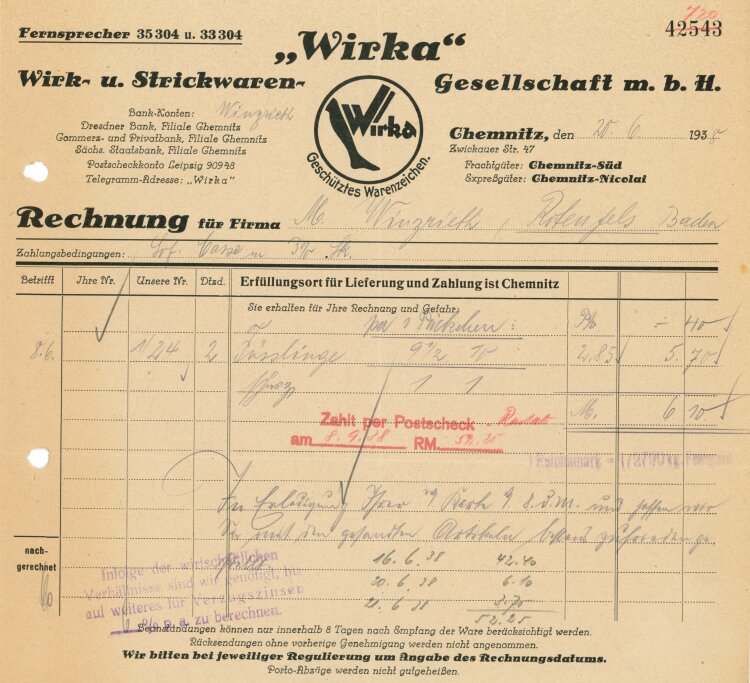 Fernsprecher 35304 u. 33304
„Wirka“
120
42543
Wirk- u. Strickwaren-
Gesellschaft m. b. H.
Bank-Konten:
Dresdner Bank, Filiale Chemnitz
Commerz- und Privatbank, Filiale Chemnitz
Sächs. Staatsbank, Filiale Chemnitz
Postscheckkonto Leipzig 90948
Telegramm-Adresse: „Wirka“
Winzrieth
Wirka
Geschütztes Warenzeichen.
Chemnitz, den 20. 6. 1938
Zwickauer Str. 47
Frachtgüter: Chemnitz-Süd
Expreßgüter: Chemnitz-Nicolai
Rechnung für Firma M. Winzrieth, Rotenfels Baden
Zahlungsbedingungen: 3%
Betrifft Ihre Nr. Unsere Nr. Dtzd. Erfüllungsort für Lieferung und Zahlung ist Chemnitz
Sie erhalten für Ihre Rechnung und Gefahr:
per 1 Päckchen: - 40
8.6. 1124 2 9 1/2 10 2.85 5. 70
1 1
M. 6 10
Zahlt per Postscheck Rastatt
am 8. 9. 38 RM 52.25
In Erledigung Ihrer Karte v. 8. d. M. und hoffen wir
Sie mit den gesandten Artikeln bestens zufrieden
16. 6. 38 42.40
20. 6. 38 6.10
21. 6. 38 3.75
52.25
nach-
gerechnet
Infolge der wirtschaftlichen
Verhältnisse sind wir genötigt, bis
auf weiteres für Verzugszinsen
6 % p. a. zu berechnen.
Beanstandungen können nur innerhalb 8 Tagen nach Empfang der Ware berücksichtigt werden.
Rücksendungen ohne vorherige Genehmigung werden nicht angenommen.
Wir bitten bei jeweiliger Regulierung um Angabe des Rechnungsdatums.
Porto-Abzüge werden nicht gutgeheißen.